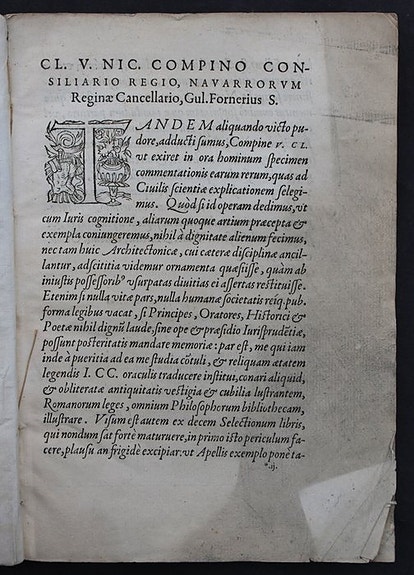 CL. V. NIC. COMPINO CON-
SILIARIO REGIO, NAVARRORVM
Reginæ Cancellario, Gul. Fornerius S.
TANDEM aliquando victo pu-
dore, adducti sumus, Compine V. CL.
vt exiret in ora hominum specimen
commentationis earum rerum, quas ad
Ciuilis scientiæ explicationem selegi-
mus. Quòd si id operam dedimus, vt
cum Iuris cognitione, aliarum quoque artium præcepta &
exempla coniungeremus, nihil à dignitate alienum fecimus,
nec tam huic Architectonicæ, cui cæteræ disciplinæ ancil-
lantur, adscititia videmur ornamenta quæsisse, quàm ab
iniustis possessoribꝰ vsurpatas diuitias ei assertas restituisse.
Etenim si nulla vitæ pars, nulla humanæ societatis reíq. pub.
forma legibus vacat, si Principes, Oratores, Historici &
Poetæ nihil dignũ laude, sine ope & præsidio Iurisprudẽtiæ,
possunt posteritatis mandare memoriæ: par est, me qui iam
inde à pueritia ad ea me studia cõtuli, & reliquam ætatem
legendis I. CC. oraculis traducere institui, conari aliquid,
& obliteratæ antiquitatis vestigia & cubilia lustrantem,
Romanorum leges, omnium Philosophorum bibliothecam,
illustrare. Visum est autem ex decem Selectionum libris,
qui nondum sat fortè maturuere, in primo isto periculum fa-
cere, plausu an frigidè excipiar: vt Apellis exemplo ponè ta-
*.ij.